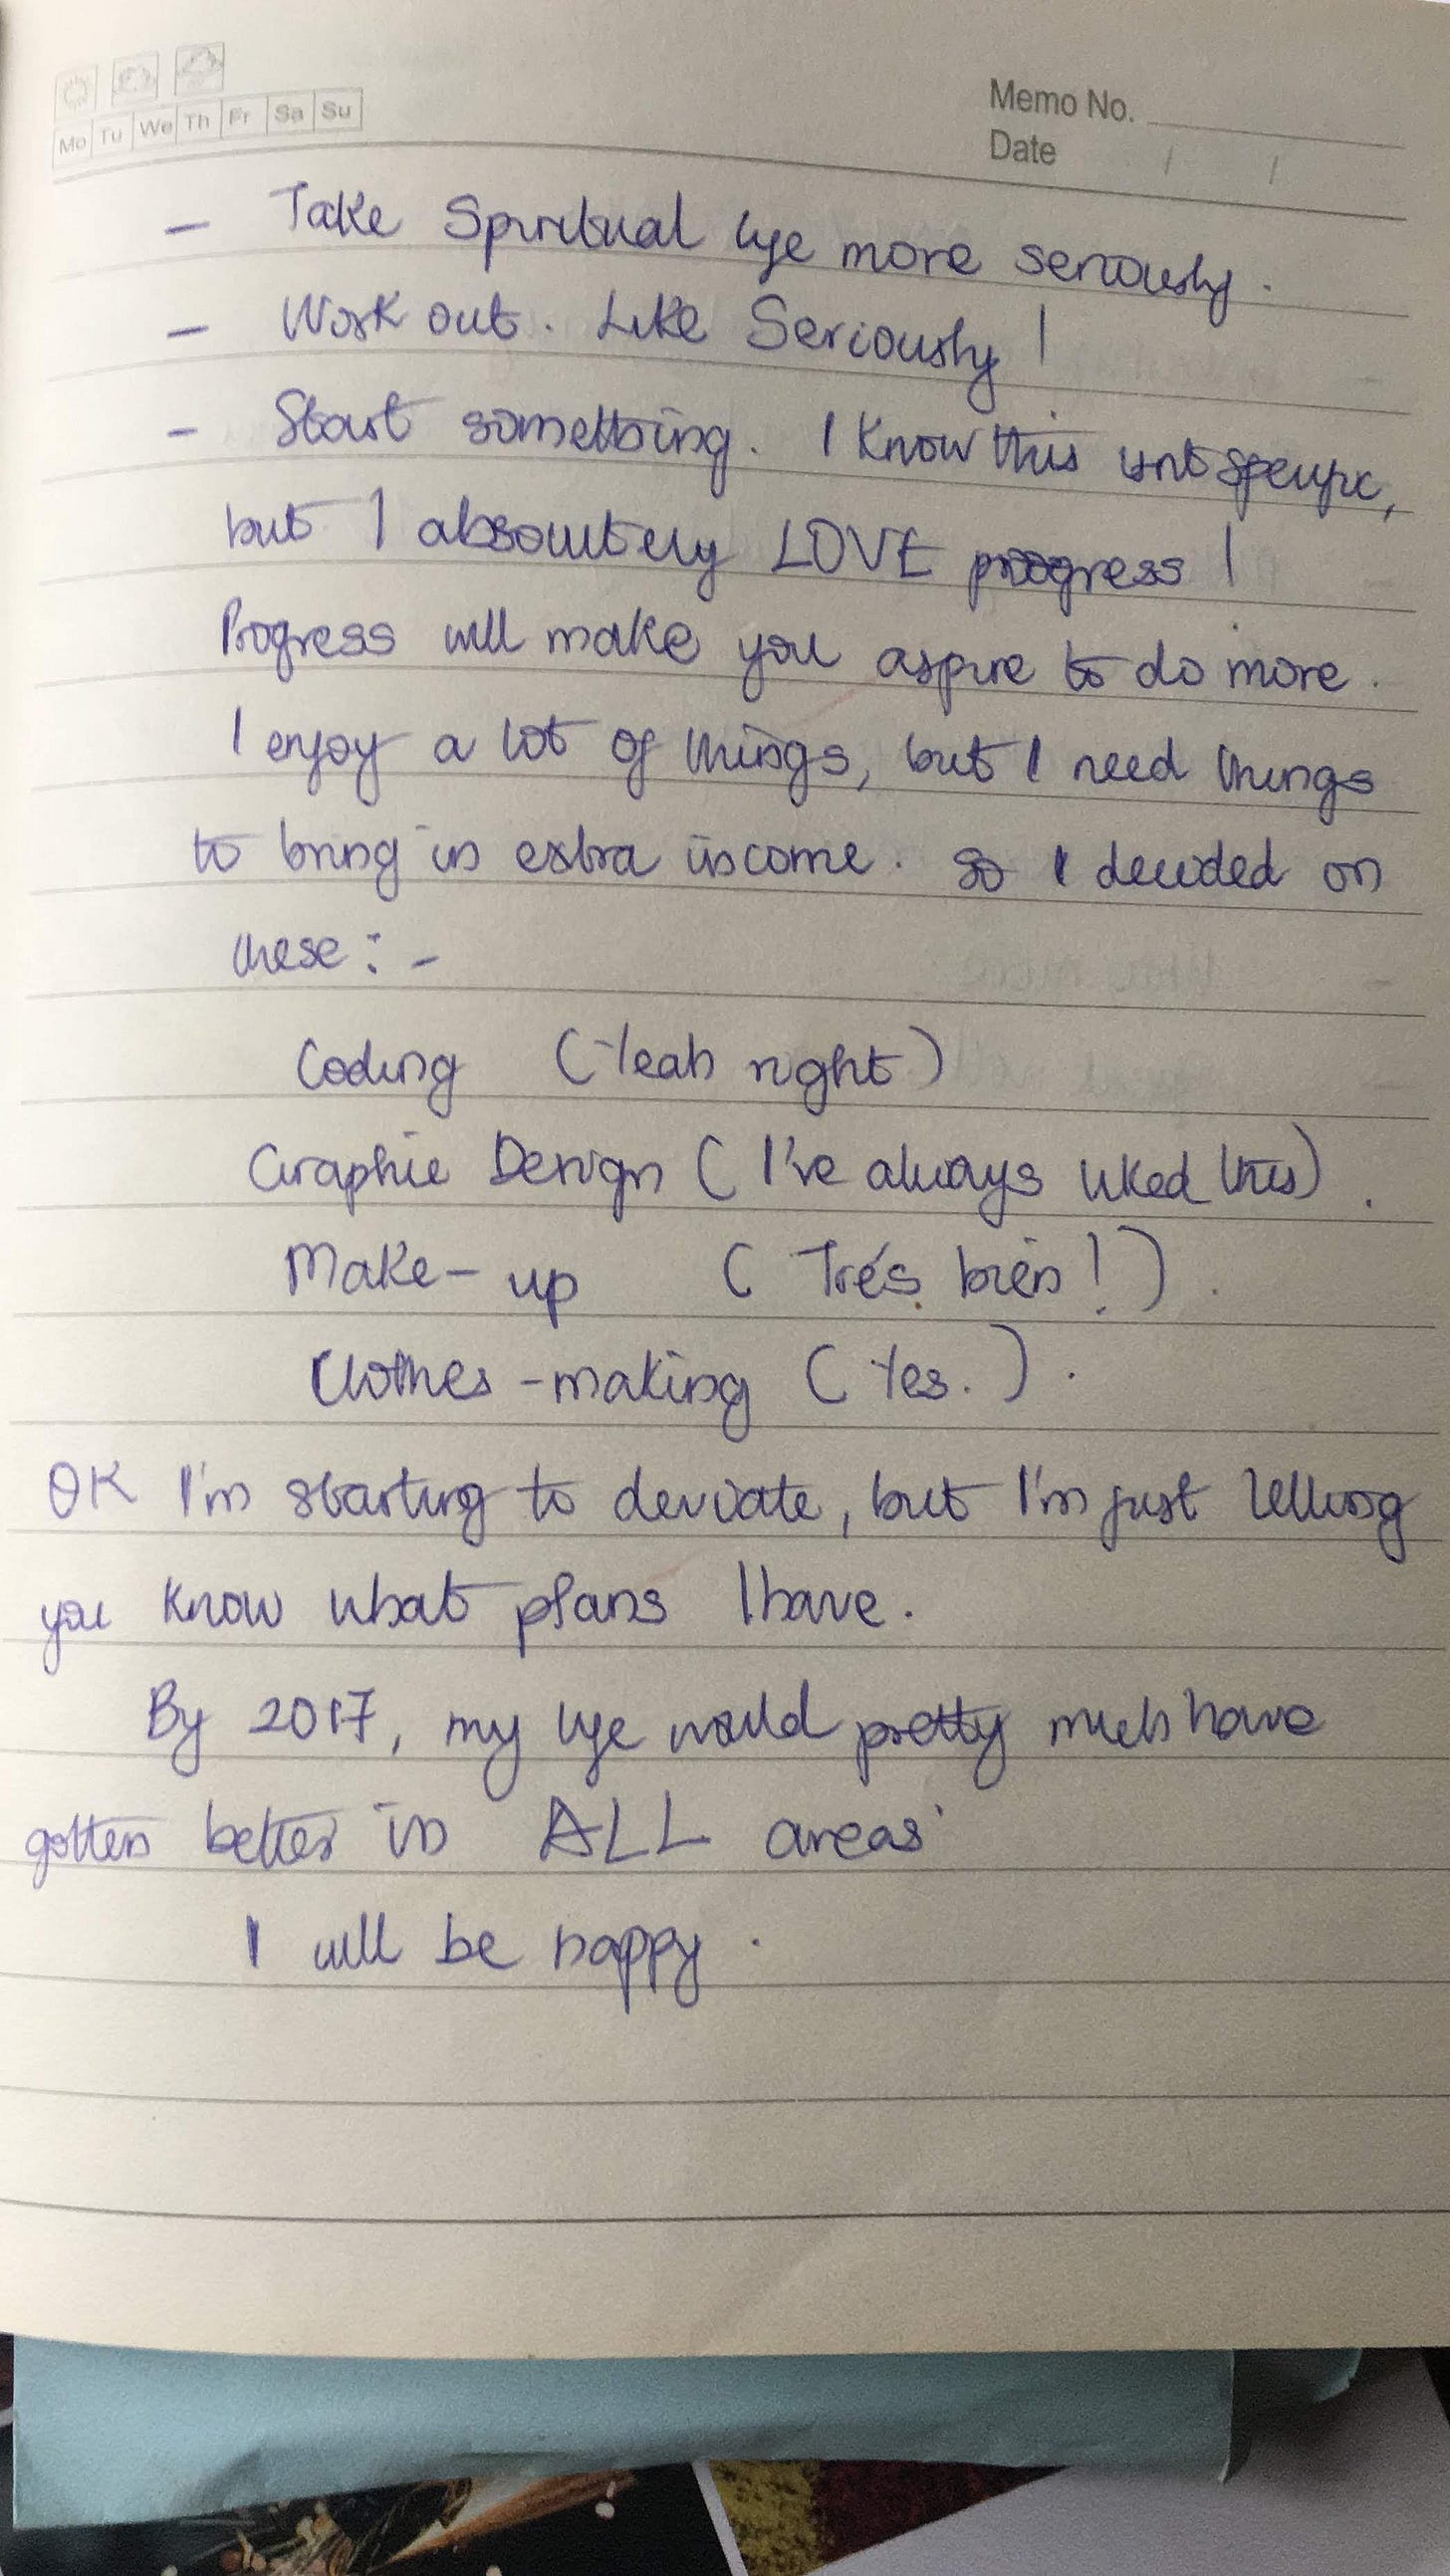 Mo Tu We Th Fr Sa Su
Memo No.
Date / /
- Take Spiritual life more seriously.
- Work out. Like Seriously!
- Start something. I know this isnt specific,
but I absolutely LOVE progress!
Progress will make you aspire to do more.
I enjoy a lot of things, but I need things
to bring in extra income. So I decided on
these:-
Coding (Yeah right)
Graphic Design (I've always liked this).
Make-up (Trés bien!)
Clothes-making (Yes.).
OK I'm starting to deviate, but I'm just telling
you know what plans I have.
By 2017, my life would pretty much have
gotten better in ALL areas.
I will be happy.